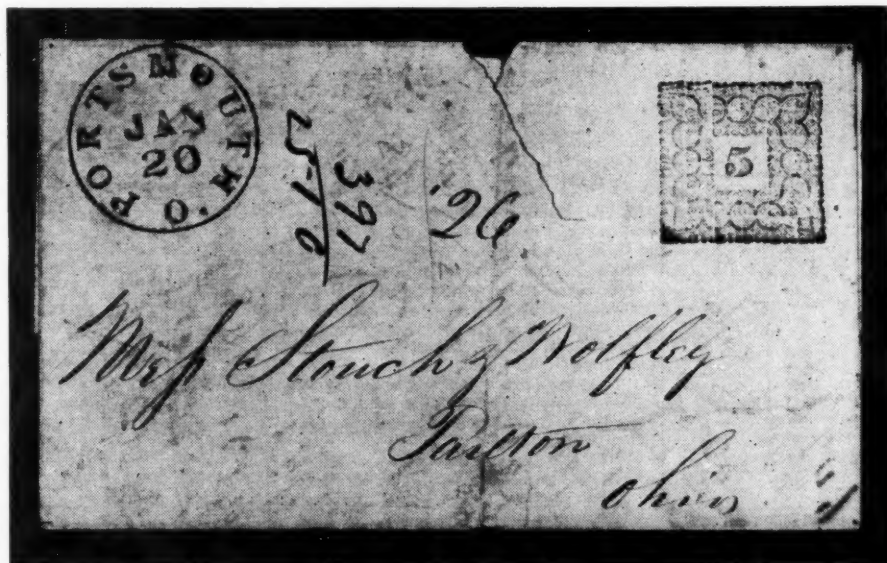 PORTSMOUTH. O.
JAN
20
5
397
26
Mess Stouch & Wolfley
Tarlton
Ohio